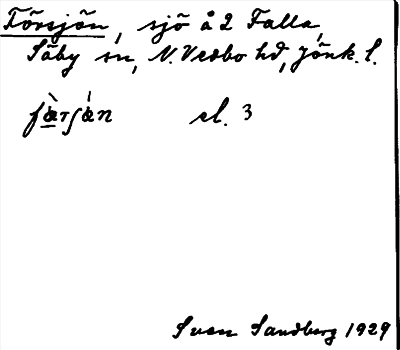 Törsjön, sjö å 2 Falla,
Säby sn, N. Vedbo hd, Jönk. l.
el. 3
Sven Sandberg 1929